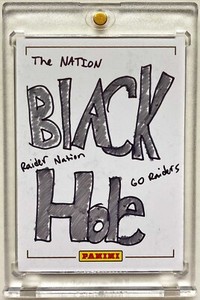 The NATION
BLACK
Raider Nation
GO Raiders
Hole
PANINI